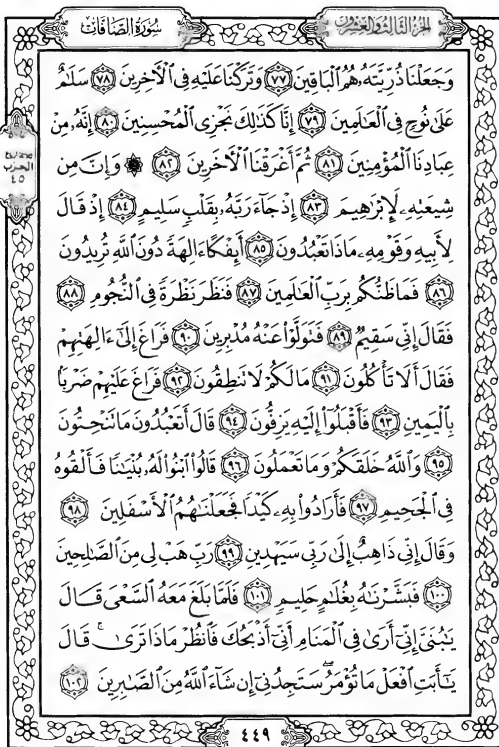 الجزء الثالث والعشرون
سورة الصافات
وَجَعَلْنَا ذُرِّيَّتَهُۥ هُمُ ٱلْبَاقِينَ ٧٧ وَتَرَكْنَا عَلَيْهِ فِى ٱلْأَخِرِينَ ٧٨ سَلَـٰمٌ
عَلَىٰ نُوحٍ فِى ٱلْعَـٰلَمِينَ ٧٩ إِنَّا كَذَٰلِكَ نَجْزِى ٱلْمُحْسِنِينَ ٨٠ إِنَّهُۥ مِنْ
عِبَادِنَا ٱلْمُؤْمِنِينَ ٨١ ثُمَّ أَغْرَقْنَا ٱلْأَخَرِينَ ٨٢ ۞ وَإِنَّ مِن
شِيعَتِهِۦ لَإِبْرَٰهِيمَ ٨٣ إِذْ جَآءَ رَبَّهُۥ بِقَلْبٍ سَلِيمٍ ٨٤ إِذْ قَالَ
لِأَبِيهِ وَقَوْمِهِۦ مَاذَا تَعْبُدُونَ ٨٥ أَئِفْكًا ءَالِهَةً دُونَ ٱللَّهِ تُرِيدُونَ
٨٦ فَمَا ظَنُّكُم بِرَبِّ ٱلْعَـٰلَمِينَ ٨٧ فَنَظَرَ نَظْرَةً فِى ٱلنُّجُومِ ٨٨
فَقَالَ إِنِّى سَقِيمٌ ٨٩ فَتَوَلَّوْا۟ عَنْهُ مُدْبِرِينَ ٩٠ فَرَاغَ إِلَىٰٓ ءَالِهَتِهِمْ
فَقَالَ أَلَا تَأْكُلُونَ ٩١ مَا لَكُمْ لَا تَنطِقُونَ ٩٢ فَرَاغَ عَلَيْهِمْ ضَرْبًۢا
بِٱلْيَمِينِ ٩٣ فَأَقْبَلُوٓا۟ إِلَيْهِ يَزِفُّونَ ٩٤ قَالَ أَتَعْبُدُونَ مَا تَنْحِتُونَ
٩٥ وَٱللَّهُ خَلَقَكُمْ وَمَا تَعْمَلُونَ ٩٦ قَالُوا۟ ٱبْنُوا۟ لَهُۥ بُنْيَـٰنًا فَأَلْقُوهُ
فِى ٱلْجَحِيمِ ٩٧ فَأَرَادُوا۟ بِهِۦ كَيْدًا فَجَعَلْنَـٰهُمُ ٱلْأَسْفَلِينَ ٩٨
وَقَالَ إِنِّى ذَاهِبٌ إِلَىٰ رَبِّى سَيَهْدِينِ ٩٩ رَبِّ هَبْ لِى مِنَ ٱلصَّـٰلِحِينَ
١٠٠ فَبَشَّرْنَـٰهُ بِغُلَـٰمٍ حَلِيمٍ ١٠١ فَلَمَّا بَلَغَ مَعَهُ ٱلسَّعْىَ قَالَ
يَـٰبُنَىَّ إِنِّىٓ أَرَىٰ فِى ٱلْمَنَامِ أَنِّىٓ أَذْبَحُكَ فَٱنظُرْ مَاذَا تَرَىٰ ۚ قَالَ
يَـٰٓأَبَتِ ٱفْعَلْ مَا تُؤْمَرُ ۖ سَتَجِدُنِىٓ إِن شَآءَ ٱللَّهُ مِنَ ٱلصَّـٰبِرِينَ ١٠٢
الحزب
٤٥
٤٤٩